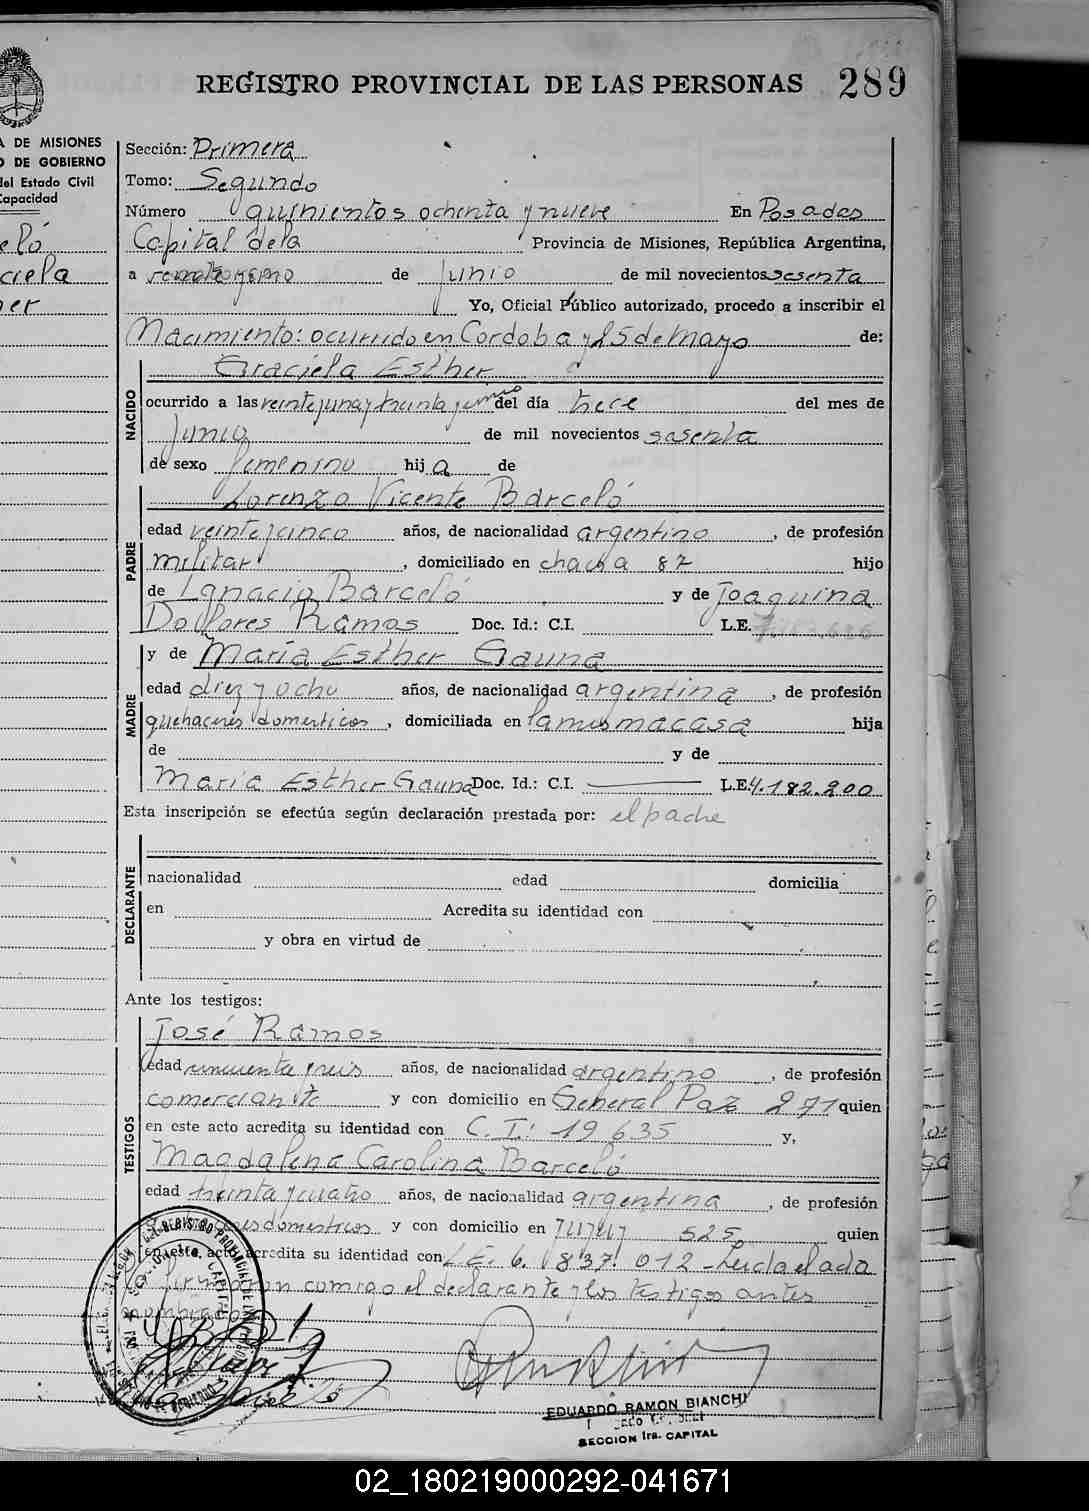 REGISTRO PROVINCIAL DE LAS PERSONAS 289
DE MISIONES
DE GOBIERNO
del Estado Civil
Capacidad
eló
ciela
her
Sección: Primera
Tomo: Segundo
Número quinientos ochenta y nueve En Posadas
Capital de la Provincia de Misiones, República Argentina,
a veintiuno de Junio de mil novecientos sesenta
Yo, Oficial Público autorizado, procedo a inscribir el
Nacimiento: ocurrido en Cordoba y 25 de Mayo de:
Graciela Esther
NACIDO
ocurrido a las veinte y una y treinta y cinco del día trece del mes de
Junio de mil novecientos sesenta
de sexo femenino hija de
Lorenzo Vicente Barceló
PADRE
edad veinte y cinco años, de nacionalidad argentino, de profesión
militar, domiciliado en chacra 87 hijo
de Ignacio Barceló y de Joaquina
Dollores Ramos Doc. Id.: C.I. L.E.
y de María Esther Gauna
MADRE
edad diez y ocho años, de nacionalidad argentina, de profesión
quehaceres domesticos, domiciliada en la misma casa hija
de y de
María Esther Gauna Doc. Id.: C.I. L.E. 4.182.200
Esta inscripción se efectúa según declaración prestada por: el padre
DECLARANTE
nacionalidad edad domicilia
en Acredita su identidad con
y obra en virtud de
Ante los testigos:
José Ramos
TESTIGOS
edad cincuenta y seis años, de nacionalidad argentino, de profesión
comerciante y con domicilio en General Paz 271 quien
en este acto acredita su identidad con C.I. 19635 y,
Magdalena Carolina Barceló
edad treinta y cuatro años, de nacionalidad argentina, de profesión
quehaceres domesticos y con domicilio en Jujuy 525, quien
en este acto acredita su identidad con L.E. 6.837.012 - Leida el acta
la firmaron conmigo el declarante y los testigos antes
nombrados
EDUARDO RAMON BIANCHI
SECCION 1ra. CAPITAL
02_180219000292-041671